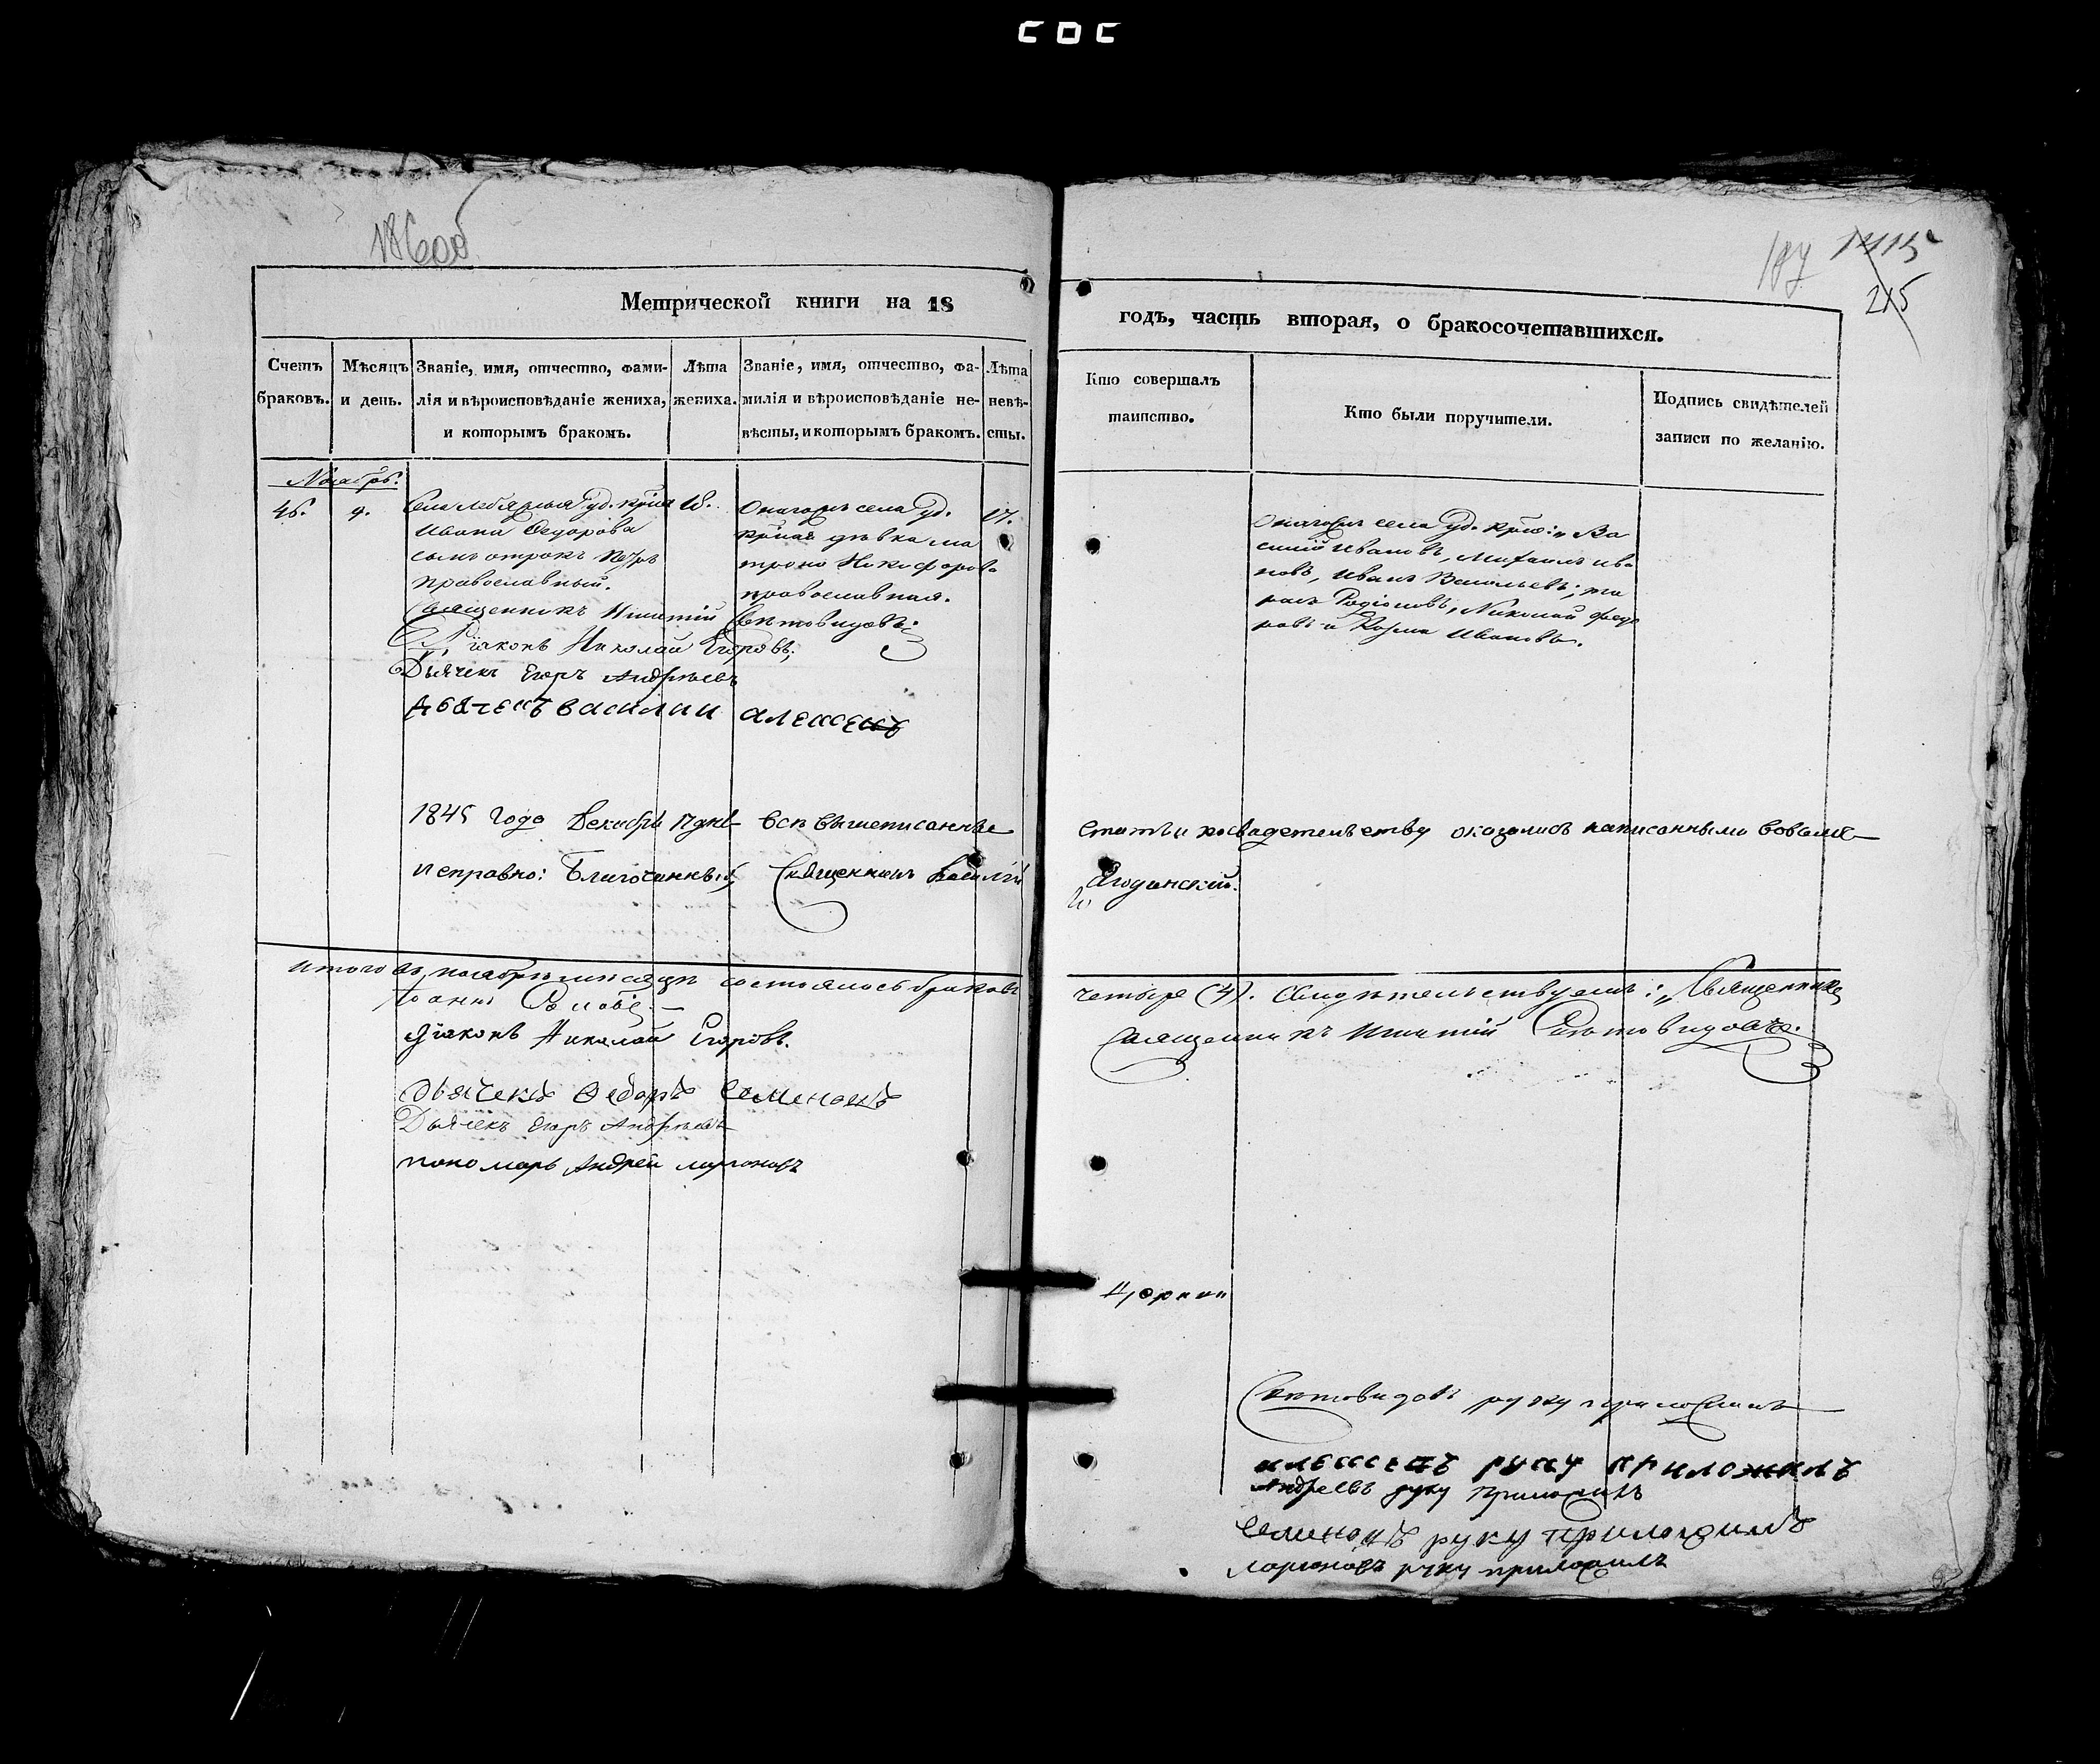 СОС
186об
187
1415
215
Метрической книги на 18
годъ, часть вторая, о бракосочетавшихся.
Счетъ браковъ.
Мѣсяцъ и день.
Званіе, имя, отчество, фами-
лія и вѣроисповѣданіе жениха,
и которымъ бракомъ.
Лѣта
жениха.
Званіе, имя, отчество, фа-
милія и вѣроисповѣданіе не-
вѣсты, и которымъ бракомъ.
Лѣта
невѣ-
сты.
Кто совершалъ
таинство.
Кто были поручители.
Подпись свидѣтелей
записи по желанію.
Ноябрь.
46.
4.
Села Лебяжья уд. крѣна
Ивана Ѳедорова
сынъ отрокъ Петръ
православный.
18.
Оногожъ села уд.
крѣна дѣвка Ма
трона Никифорова
православная.
17.
Оногожъ села уд. крѣе: Ва
силій Ивановъ, Михаилъ Ива
новъ, Иванъ Васильевъ; та
расъ Родіоновъ, Николай Федо
ровъ и Козма Ивановъ.
Священникъ Игнатій Свѣтовидовъ
Діаконъ Николай Егоровъ;
Дьячекъ Егоръ Андреевъ
дьячекъ василии алексеевъ
1845 года Декабря 17 дня всѣ вышеписанные
статьи по свидетельству оказались написанными
исправно: Благочинный, Священникъ Василій
Ягодинскій.
Итого въ ноябрѣ мѣсяцѣ состоялось браковъ
четыре (4). Свидѣтельствуемъ: Священникъ
Іоаннъ
Священникъ Игнатій Свѣтовидовъ.
Діаконъ Николай Егоровъ.
Дьячекъ Ѳедоръ Семеновъ
Дьячекъ Егоръ Андреевъ
пономарь Андрей Ларіоновъ
Свѣтовидовъ руку приложилъ
алексеевъ руку приложилъ
Андреевъ руку приложилъ
Семеновъ руку приложилъ
Ларіоновъ руку приложилъ